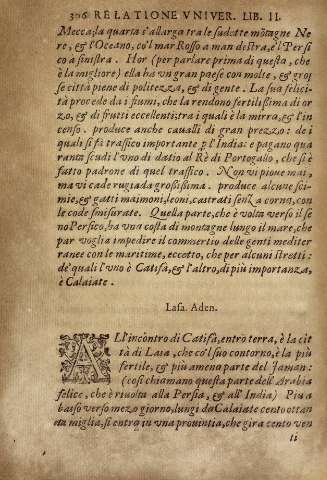 306 RELATIONE VNIVER. LIB. II.
Mecca; la quarta s'allarga tra le sudette mōtagne Ne
re, & l'Oceano, co'l mar Rosso a man destra, e'l Persi
co a sinistra. Hor (per parlare prima di questa, che
è la migliore) ella ha vn gran paese con molte, & gros
se città piene di politezza, & di gente. La sua felici-
tà procede da i fiumi, che la rendono fertilissima di or
zo, & di frutti eccellenti; tra i quali è la mirra, & l'in
censo. produce anche caualli di gran prezzo: de i
quali si fà trassico importante p l'India: e pagano qua
ranta scudi l'vno di datio al Rè di Portogallo, che si è
fatto padrone di quel traffico. Non vi pioue mai,
ma vi cade rugiada grossissima. produce alcune sci-
mie, & gatti maimoni, leoni, castrati senza corna, con
le code smisurate. Quella parte, che è volta verso il se
no Persico, ha vna costa di montagne lungo il mare, che
par voglia impedire il commertio delle genti mediter
ranee con le maritime, eccetto, che per alcuni stretti:
de' quali l'vno è Catifa, & l'altro, di più importanza,
è Calaiate.
Lasa. Aden.
All'incontro di Catifà, entro terra, è la cit
tà di Lasa, che co'l suo contorno, è la più
fertile, & più amena parte del Jaman:
(così chiamano questa parte dell'Arabia
felice, che è riuolta alla Persia, & all'India) Piu a
basso verso mezo giorno, lungi da Calaiate cento ottan
ta miglia, si entra in vna prouintia, che gira cento ven
ti